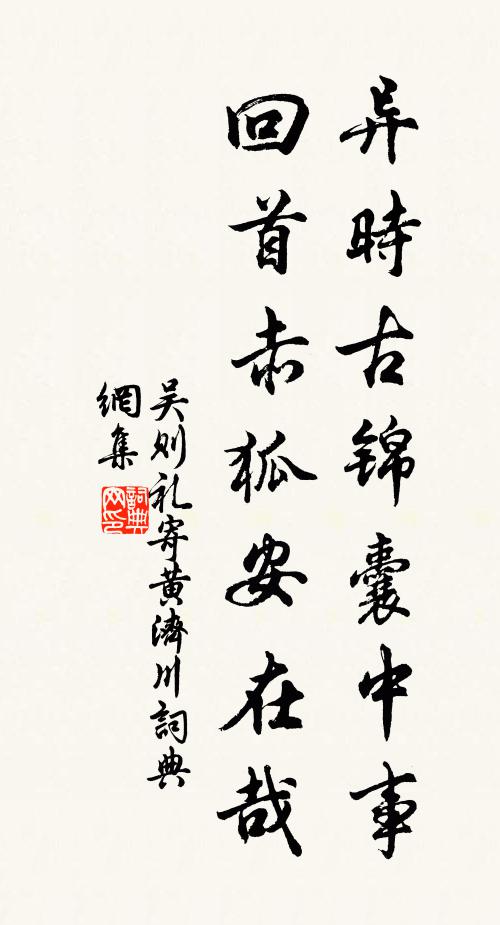 异時古锦囊中事
回首赤狐安在哉
吴则礼寄黄濟川詞典
網集
詞典
网印